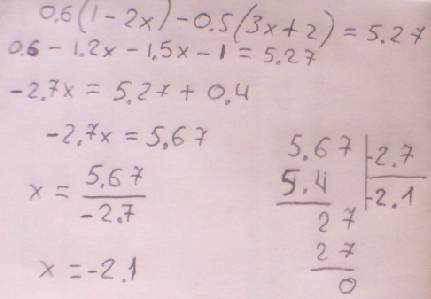 0.6(1-2x)-0.5(3x+2)=5.27
0.6-1.2x-1.5x-1=5.27
-2.7x=5.27+0.4
-2.7x=5.67
x=5.67/-2.7
x=-2.1
5.67 | -2.7
5.4 | -2.1
27
27
0